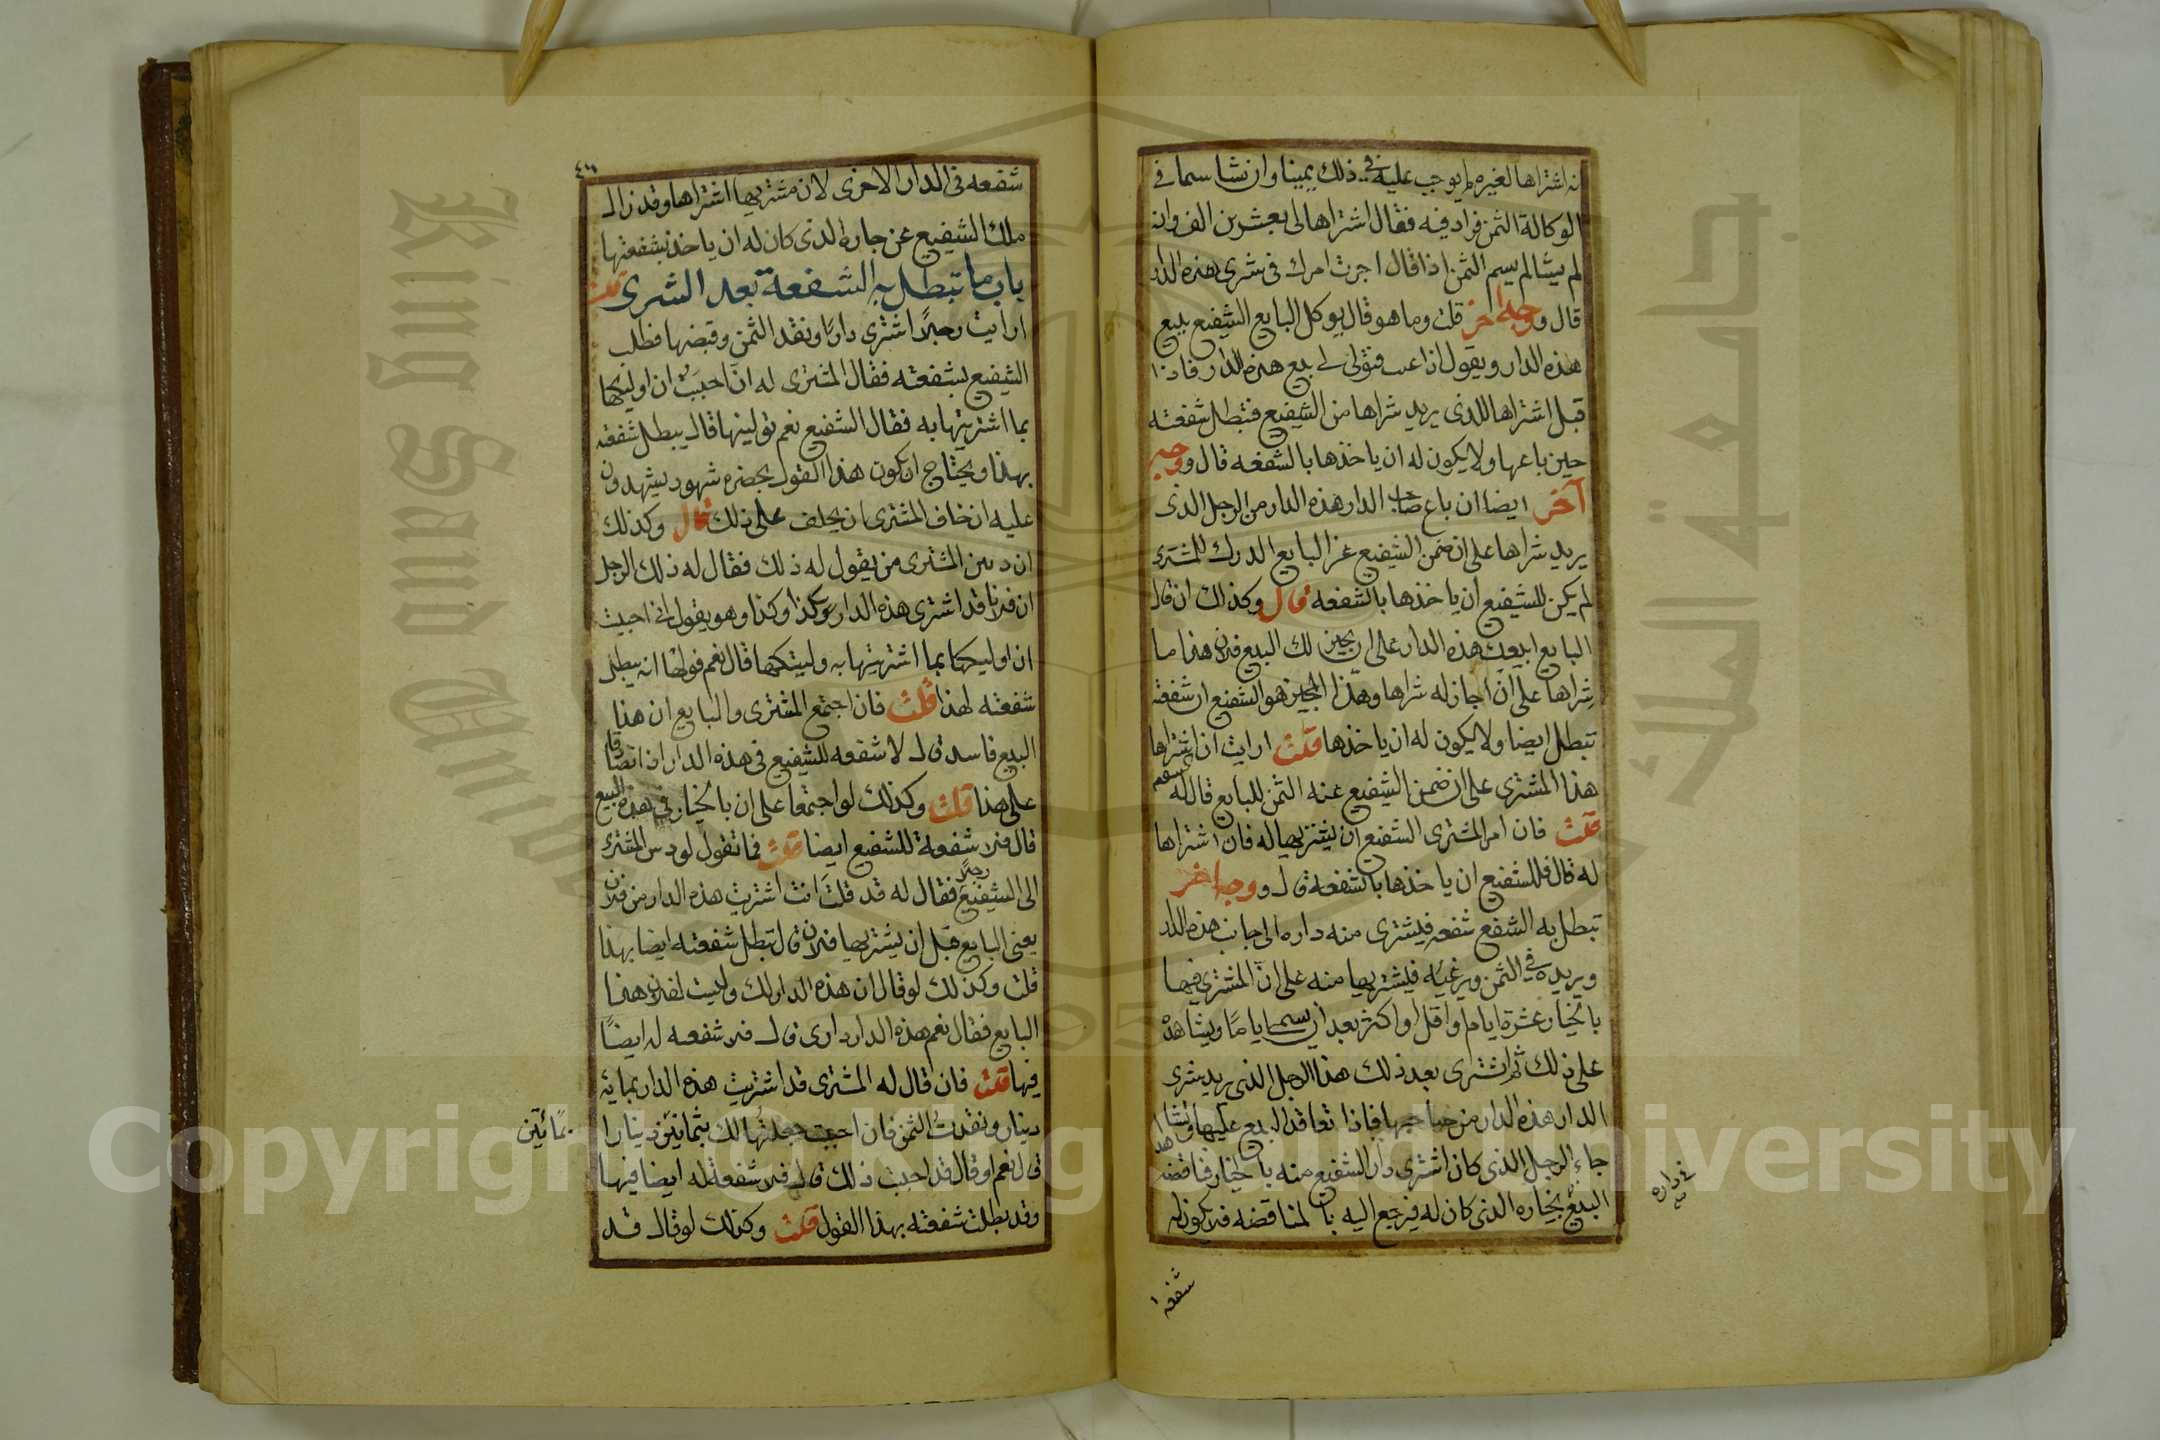 نه اشتراها لغيره لم يوجب عليه في ذلك يمينا وان نشا سما في
الوكالة الثمن فزاد فيه فقال اشتراها لي بعشرين الف وان
لم يشا لم يسم الثمن اذا قال اجرت امرك في شرى هذه الدار
قال ووجه اخر قلت وما هو قال يوكل البايع الشفيع ببيع
هذه الدار ويقول اذا فتولى لي بيع هذه الدار فاذا
قبل اشتراها للذى يريد شراها من الشفيع فتبطل شفعته
حين باعها ولا يكون له ان ياخذها بالشفعه قال ووجه
آخر ايضا ان باع صاحب الدار هذه الدار من الرجل الذى
يريد شراها على ان ضمن الشفيع عن البايع الدرك للمشترى
لم يكن للشفيع ان ياخذها بالشفعه قال وكذلك ان قال
البايع ابيعك هذه الدار على ان يجيز لك البيع فلان هذا ما
شراها على ان اجاز له شراها وهذا المجيز هو الشفيع ان شفعته
تبطل ايضا ولا يكون له ان ياخذها قلت ارايت ان اشتراها
هذا المشترى على ان ضمن الشفيع عنه الثمن للبايع قال له
قلت فان امر المشترى الشفيع ان يشتريها له فان اشتراها
له قال فللشفيع ان ياخذها بالشفعة قال ووجه اخر
تبطل به الشفيع شفعه فيشترى منه داره الى جانب هذه الدار
ويريده في الثمن ويرغبه فيشتريها منه على ان المشترى فيها
بالخيار عشرة ايام او اقل او اكثر بعد ان يسمى اياما ويشاهده
على ذلك ثم اشترى بعد ذلك هذا الرجل الذى يريد شرى
الدار هذه الدار من صاحبها فاذا تعاقد البيع عليها وتشاهدا
جاء الرجل الذى كان اشترى دار الشفيع منه بالخيار فناقضه
البيع بخياره الذى كان له فيرجع اليه بالمناقضه فلا يكون له
في داره
شفعه
شفعه في الدار الاخرى لان مشتريها اشتراها وقد زال
ملك الشفيع عن جاره الذى كان له ان ياخذ بشفعتها
باب ما تبطل به الشفعة بعد الشرى قلت
ارايت رجلا اشترى دارا ونقد الثمن وقبضها فطلب
الشفيع بشفعته فقال المشترى له ان احببت ان اوليكها
بما اشتريتها به فقال الشفيع نعم تولينها قال يبطل شفعته
بهذا ويحتاج ان يكون هذا القول بحضره شهود يشهدون
عليه ان خاف المشترى ان يحلف على ذلك قال وكذلك
ان دس المشترى من يقول له ذلك فقال له ذلك الرجل
ان فلانا قد اشترى هذه الدار بكذا وكذا وهو يقول ان احببت
ان اوليكها بما اشتريتها به وليتكها قال نعم فولها انه يبطل
شفعته لهذا قلت فان اجتمع المشترى والبايع ان هذا
البيع فاسد قال لا شفعه للشفيع في هذه الدار اذا اتصادقا
على هذا قلت وكذلك لو اجتمعا على ان بالخيار في هذه البيع
قال فلا شفعة للشفيع ايضا قلت فما تقول لو دس المشترى
الى الشفيع رجلا فقال له قد قلت انت اشتريت هذه الدار من فلان
يعنى البايع قبل ان يشتريها فلان قال تبطل شفعته ايضا بهذا
قلت وكذلك لو قال ان هذه الدار لك وليست لفلان هذا
البايع فقال نعم هذه الدار دارى قال فلا شفعه له ايضا
فيها قلت فان قال له المشترى قد اشتريت هذه الدار بمايه
دينار ونقدت الثمن فان احببت جعلتها لك بثمانين دينارا
قال نعم او قال قد احببت ذلك قال فلا شفعة له ايضا فيها
وقد بطلت شفعته بهذا القول قلت وكذلك لو قال قد
بمائتين
جامعة الملك
King Saud University
Copyright © King Saud University